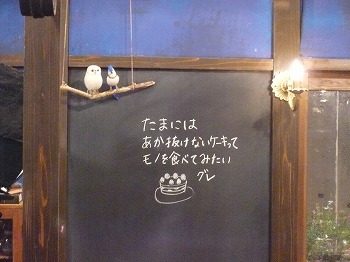 たまには
あか抜けないケーキって
モノを食べてみたい
グレ